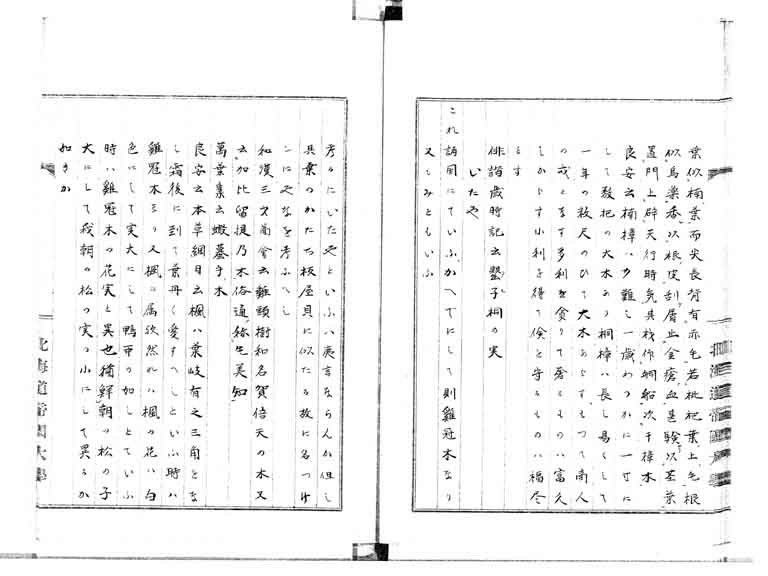 葉似楠葉而尖長背有赤毛若枇杷葉上毛根
似烏薬香以根皮刮屑止金瘡血甚験以茎葉
置門上辟天行時気其材作桐船次于樟木
良安云楠樟ハ少難し一歳わつかに一寸に
して数把の大木あり桐樟ハ長し易くして
一年の数尺のひて大木あらすもつて商人
の戒とます多利を貪りて奢るものハ富久
しからす小利を得て倹を守るものハ福尽
きす
俳諧歳時記云罌子桐の実
いたや
これ諸国にていふかへてにして則雞冠木なり
又しみともいふ
考るにいたやといふハ夷言ならんか但し
其葉のかたち板屋貝に似たる故に名つけ
しにやなを考ふへし
和漢三才図会云雞頭樹和名賀倍天の木又
云加比留提乃木俗通称毛美知
萬葉集云蝦蟇手木
良安云本草綱目云楓ハ葉岐有之三角とな
し霜後に到て葉丹く愛すへしといふ時ハ
雞冠木ミり又楓に属次然れハ楓の花ハ白
色にして実大にして鴨卵の如しといふ
時ハ雞冠木の花実と異也猶鮮朝の松の子
大にして我朝の松の実の小にして異るか
如きか
北海道帝国大學